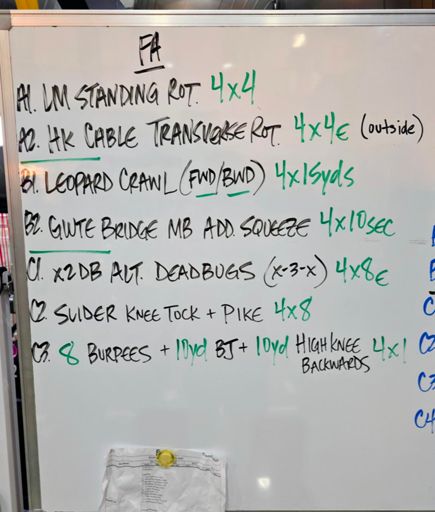 FA
A1. LM STANDING ROT. 4x4
A2. HK CABLE TRANSVERSE ROT. 4x4E (outside)
B1. LEOPARD CRAWL (FWD/BWD) 4x15yds
B2. GLUTE BRIDGE MB ADD. SQUEEZE 4x10SEC
C1. x2DB ALT. DEADBUGS (x-3-x) 4x8E
C2. SLIDER KNEE TOCK + PIKE 4x8
C3. 8 BURPEES + 10yd BJ + 10yd HIGH KNEE BACKWARDS 4x1
C
C2
C3
C4